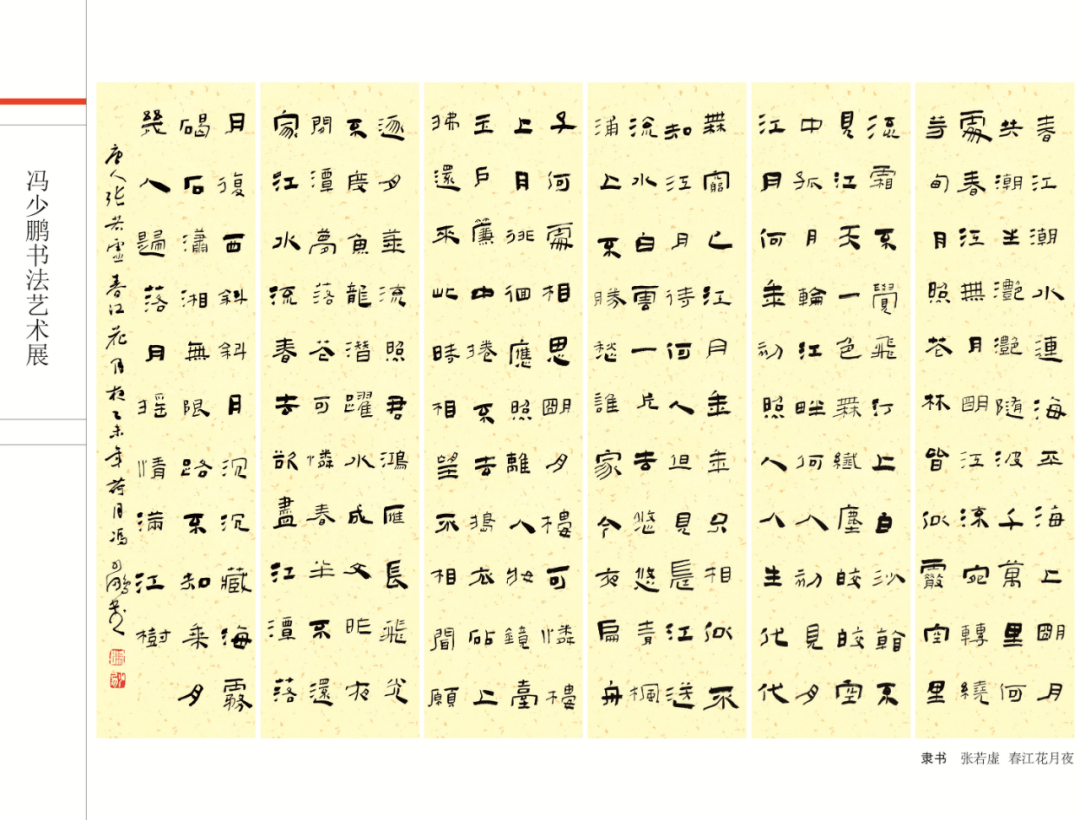 冯少鹏书法艺术展
春江潮水連海平海上朙月
共潮生灩灩隨波千萬里何
處春江無月朙江流宛轉繞
芳甸月照花林皆似霰空里
流霜不覺飛汀上白沙看不
見江天一色無纖塵皎皎空
中孤月輪江畔何人初見月
江月何年初照人人生代代
無窮已江月年年只相似不
知江月待何人但見長江送
流水白雲一片去悠悠青楓
浦上不勝愁誰家今夜扁舟
子何處相思朙月樓可憐樓
上月徘徊應照離人妝鏡臺
玉戶簾中捲不去搗衣砧上
拂還來此時相望不相聞願
逐月華流照君鴻雁長飛光
不度魚龍潛躍水成文昨夜
閒潭夢落花可憐春半不還
家江水流春去欲盡江潭落
月復西斜斜月沉沉藏海霧
碣石瀟湘無限路不知乘月
幾人歸落月搖情滿江樹
唐人张若虚春江花月夜乙未年荷月冯少鹏书
隶书 张若虚 春江花月夜